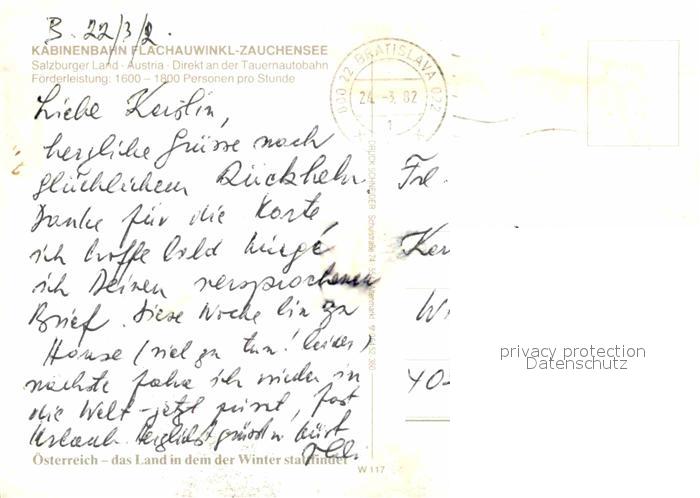 B. 22/3/2.
KABINENBAHN FLACHAUWINKL-ZAUCHENSEE
Salzburger Land · Austria · Direkt an der Tauernautobahn
Förderleistung: 1600 – 1800 Personen pro Stunde
000 22 BRATISLAVA 022
24.-3.82
1
Liebe Kerstin,
herzliche Grüsse nach
glücklichem Rückkehr.
Danke für die Karte,
ich hoffe bald kriege
ich Deinen versprochenen
Brief. Diese Woche bin zu
Hause (viel zu tun! leider)
nächste fahre ich wieder in
die Welt - jetzt
Urlaub.
Österreich – das Land in dem der Winter stattfindet
W 117
DRUCK SCHNEIDER
Frl.
Ker
privacy protection
Datenschutz